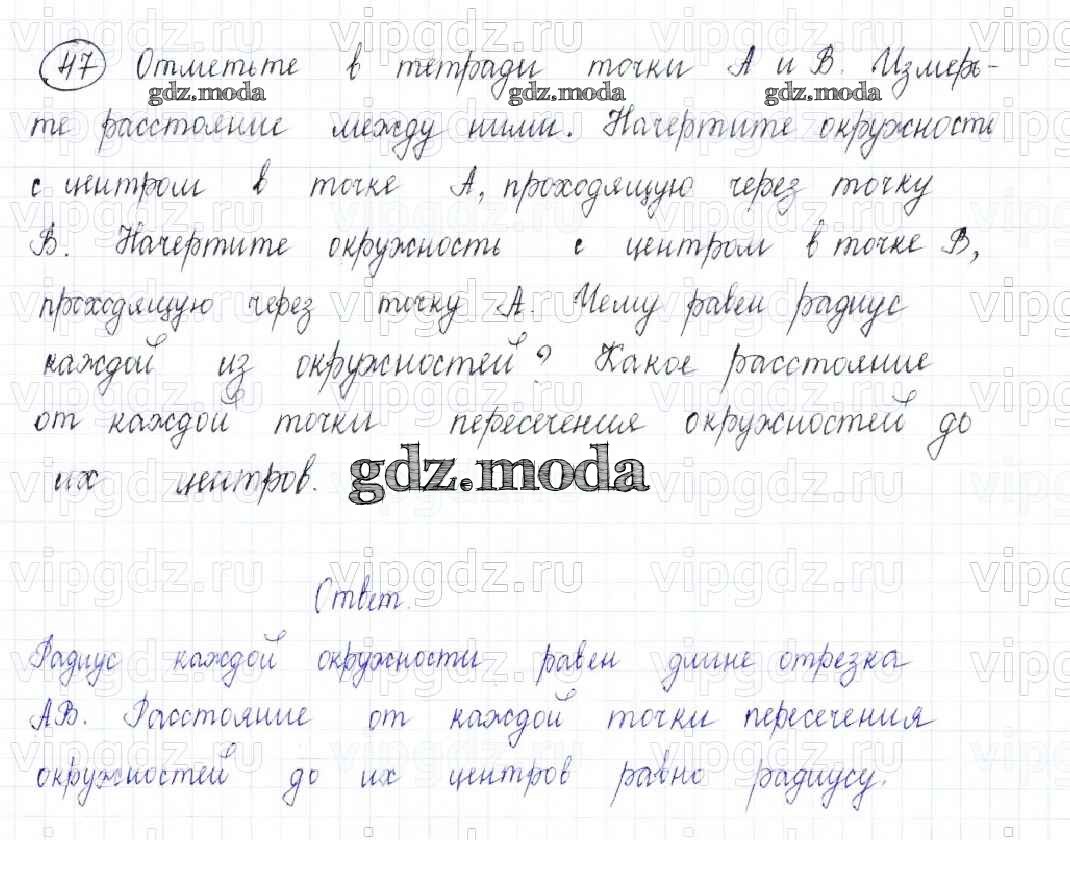 47 Отметьте в тетради точки А и В. Измерь-
gdz.moda gdz.moda gdz.moda
те расстояние между ними. Начертите окружность
с центром в точке А, проходящую через точку
В. Начертите окружность с центром в точке В,
проходящую через точку А. Чему равен радиус
каждой из окружностей? Какое расстояние
от каждой точки пересечения окружностей до
их центров.
gdz.moda
Ответ.
Радиус каждой окружности равен длине отрезка
АВ. Расстояние от каждой точки пересечения
окружностей до их центров равно радиусу.
vipgdz.ru vipgdz.ru vipgdz.ru